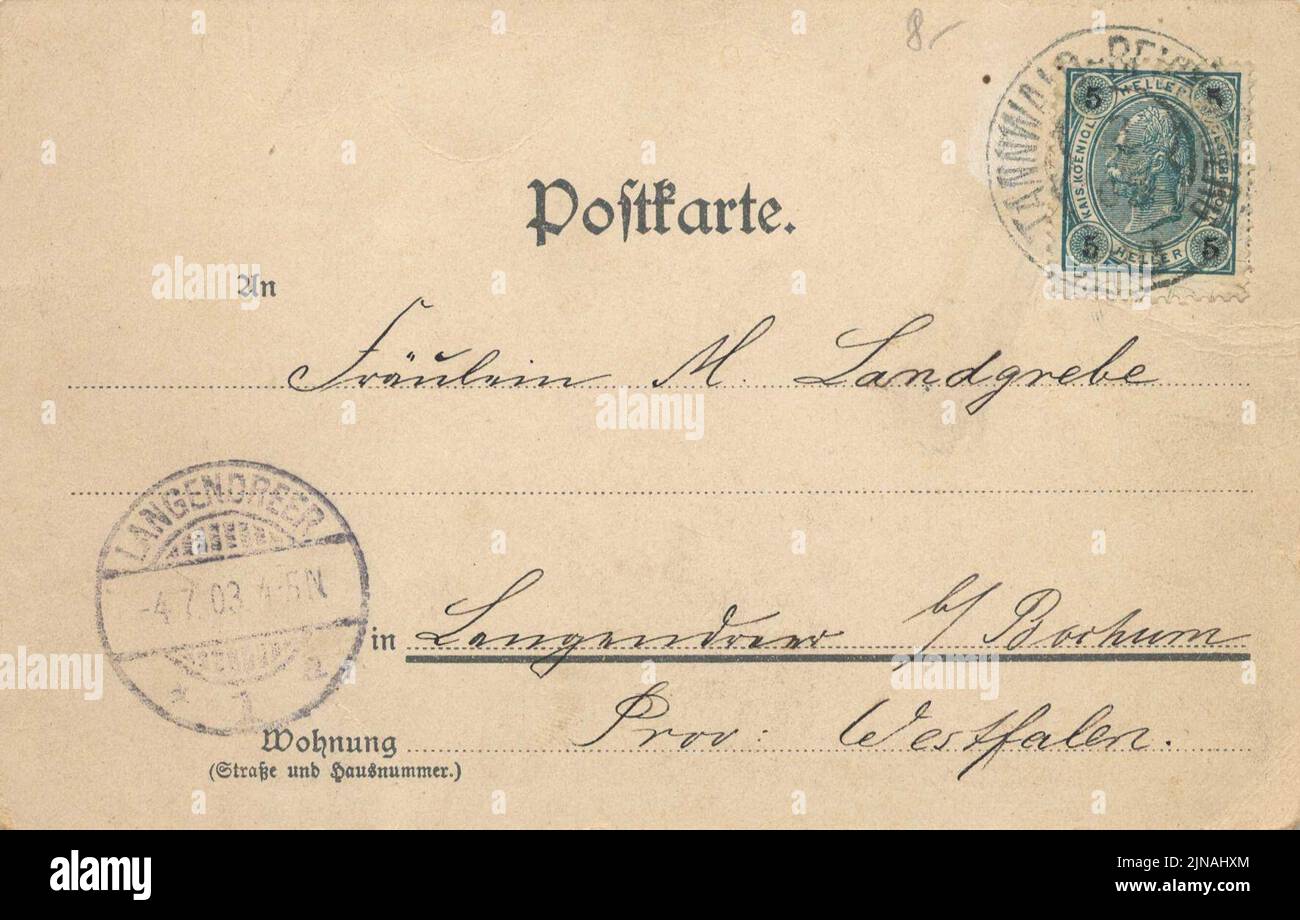 8.-
TANNWALD
5 HELLER 5
KAIS. KOENIGL.
5 HELLER 5
Postkarte.
An
Fräulein M. Landgrebe
LANGENDREER
-4.7.03.4-5N
* 1 a
in Langendreer b/ Bochum
Wohnung Prov: Westfalen.
(Straße und Hausnummer.)
a alamy
alamy
Image ID: 2JNAHXM
www.alamy.com